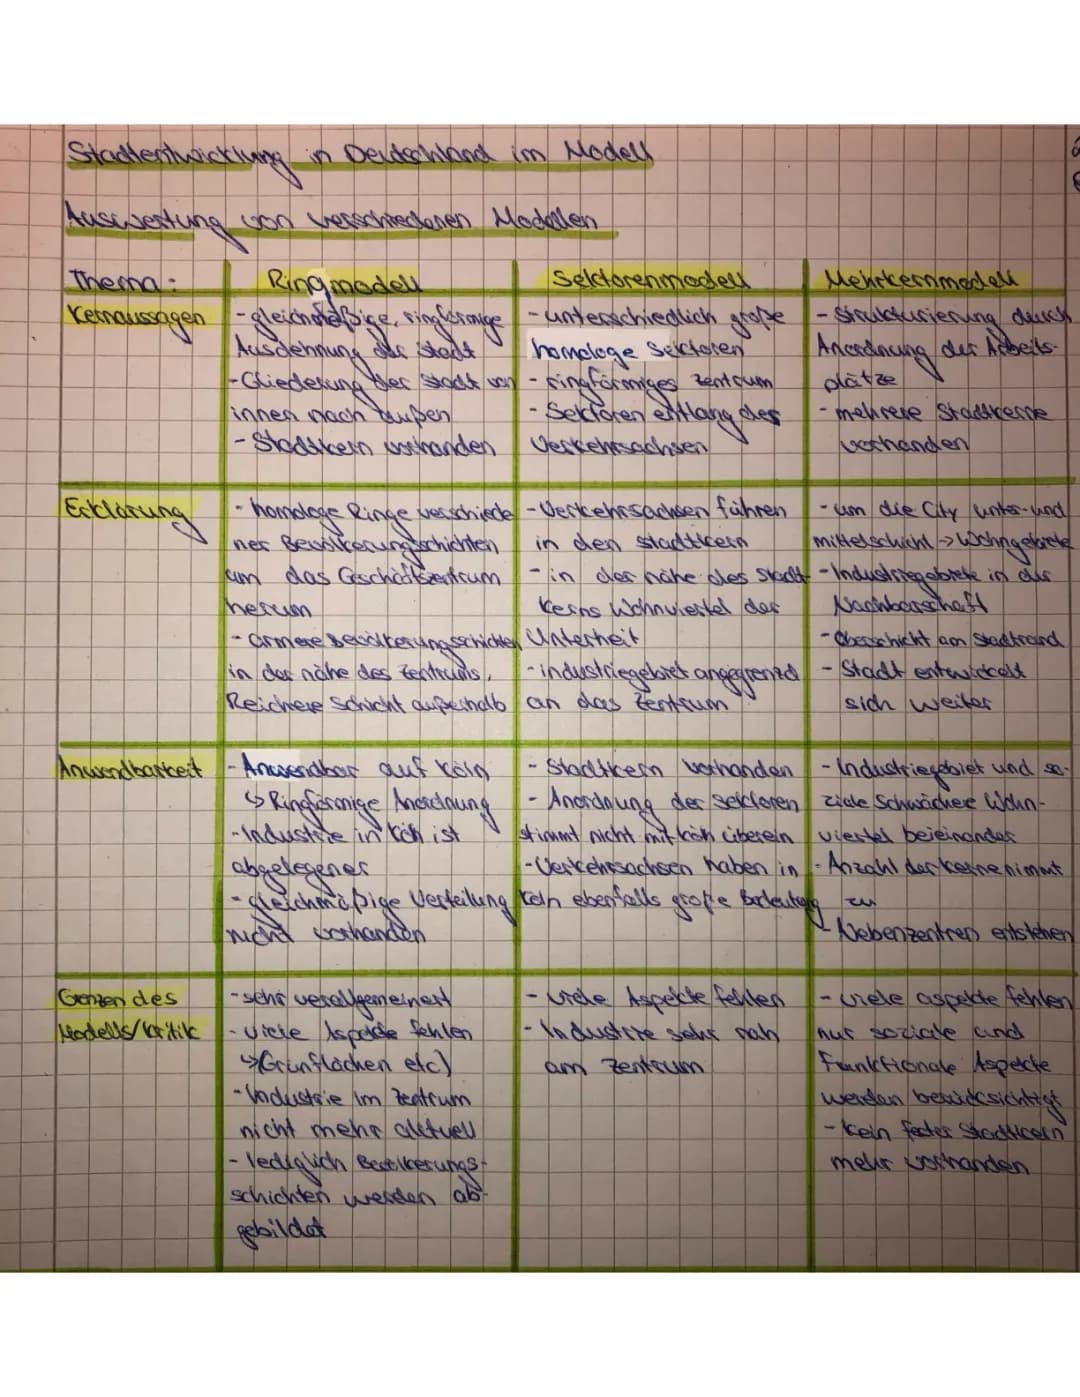 Stadtentwicklung in Deutschland im Modell
Auswertung von verschiedenen Modellen
Thema:
Ringmodell
Sektorenmodell
Mehrkernmodell
Kernaussagen
- gleichmäßige, ringförmige
Ausdehnung der Stadt
- Gliederung der Stadt von
innen nach außen
- Stadtkern vorhanden
- unterschiedlich große
homologe Sektoren
- ringförmiges Zentrum
- Sektoren entlang der
Verkehrsachsen
- Strukturierung durch
Anordnung der Arbeits-
plätze
- mehrere Stadtkerne
vorhanden
Erklärung
- homologe Ringe verschiede
ner Bevölkerungsschichten
um das Geschäftszentrum
herum
- ärmere Bevölkerungsschichten
in der nähe des Zentrums,
Reichere Schicht außerhalb
- Verkehrsachsen führen
in den Stadtkern
- in der nähe des Stadt-
kerns Wohnviertel der
Unterheit
- industriegebiet angegrenzd
an das Zentrum
- um die City unter- und
mittelschicht → Wohngebiete
- Industriegebiete in der
Nachbarschaft
- Oberschicht am Stadtrand
- Stadt entwickelt
sich weiter
Anwendbarkeit
- Anwendbar auf Köln
↳ Ringförmige Anordnung
- Industrie in Köln ist
abgelegener
- gleichmäßige Verteilung
nicht vorhanden
- Stadtkern vorhanden
- Anordnung der Sektoren
stimmt nicht mit Köln überein
- Verkehrsachsen haben in
Köln ebenfalls große Bedeutung
- Industriegebiet und so-
ziale Schwächere Wohn-
viertel beieinander
- Anzahl der Kerne nimmt
zu
- Nebenzentren entstehen
Grenzen des
Modells/Kritik
- sehr verallgemeinert
- viele Aspekte fehlen
↳ Grünflächen etc)
- Industrie im Zentrum
nicht mehr aktuell
- lediglich Bevölkerungs-
schichten werden ab-
gebildet
- viele Aspekte fehlen
- Industrie sehr nah
am Zentrum
- viele aspekte fehlen
nur soziale und
Funktionale Aspekte
werden berücksichtigt
- kein fester Stadtkern
mehr vorhanden